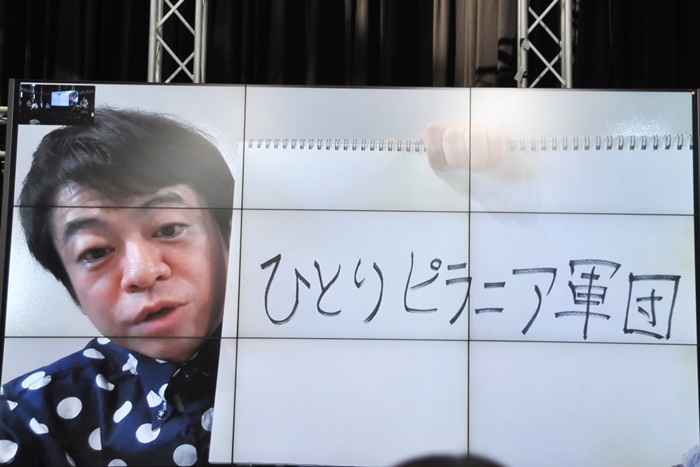 ひとりピラニア軍団